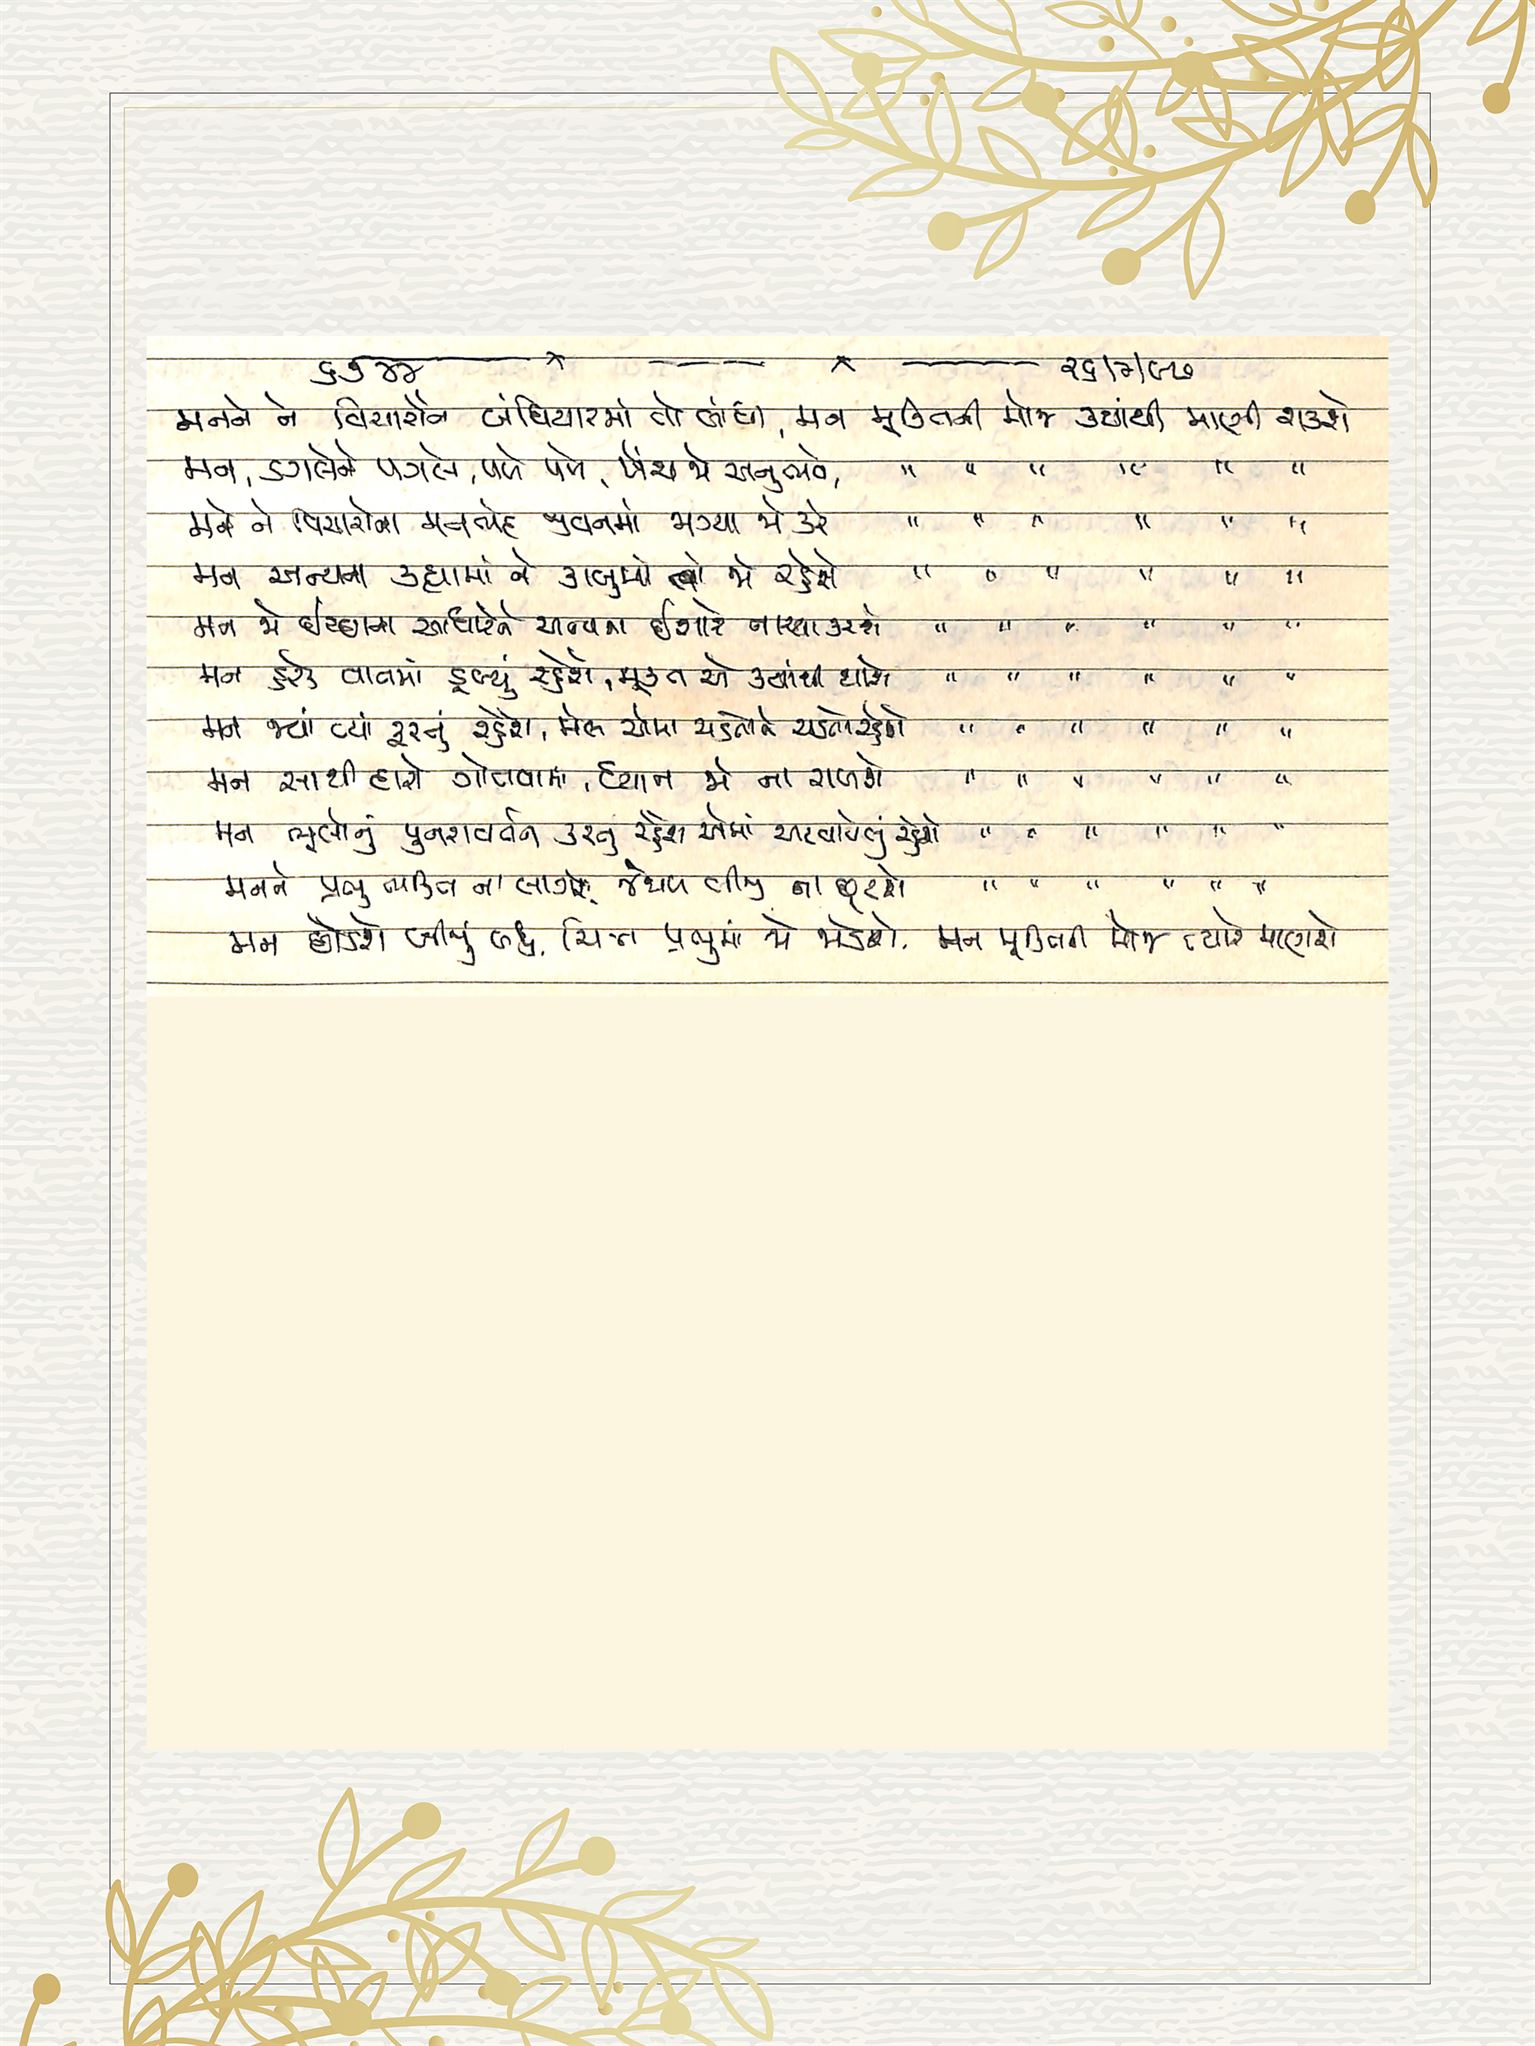 ૬૭૪૪ ————— × ——— × ————— ૨૬/૨/૯૭
મનને ને વિચારોને બંધિયારમાં તો બાંધી, મન મૂક્તિની મોજ ક્યાંથી માણી શકશે
મન, ડગલેને પગલે, પળે પળે, ખેંચ જો અનુભવે, " " " " " "
મન ને વિચારોના મનભેદ જીવનમાં જાગ્યા જો કરે " " " " " "
મન અન્યના કહ્યામાં ને કાબુમાં જો રહેશે " " " " " "
મન જો ઈચ્છાના આધારેને અન્યના ઈશારે નાચ્યા કરશે " " " " " "
મન હરેક વાતમાં ડૂબ્યું રહેશે, મૂક્ત એ ક્યાંથી થાશે " " " " " "
મન જ્યાં ત્યાં ફરતું રહેશે, મેલ એમાં ચડતોને ચડતો રહેશે " " " " " "
મન સાથી હાશે ગોતવામાં, ધ્યાન જો ના રાખશે " " " " " "
મન ભૂલોનું પુનરાવર્તન કરતું રહેશે એમાં અટવાયેલું રહેશે " " " " " "
મનને પ્રભુ ભક્તિ ના લાગશે, જંજાળ બીજી ના છૂટશે " " " " " "
મન છોડશે બીજું બધું, ચિત્ત પ્રભુમાં જો જોડશે. મન મૂક્તિની મોજ ત્યારે માણશે